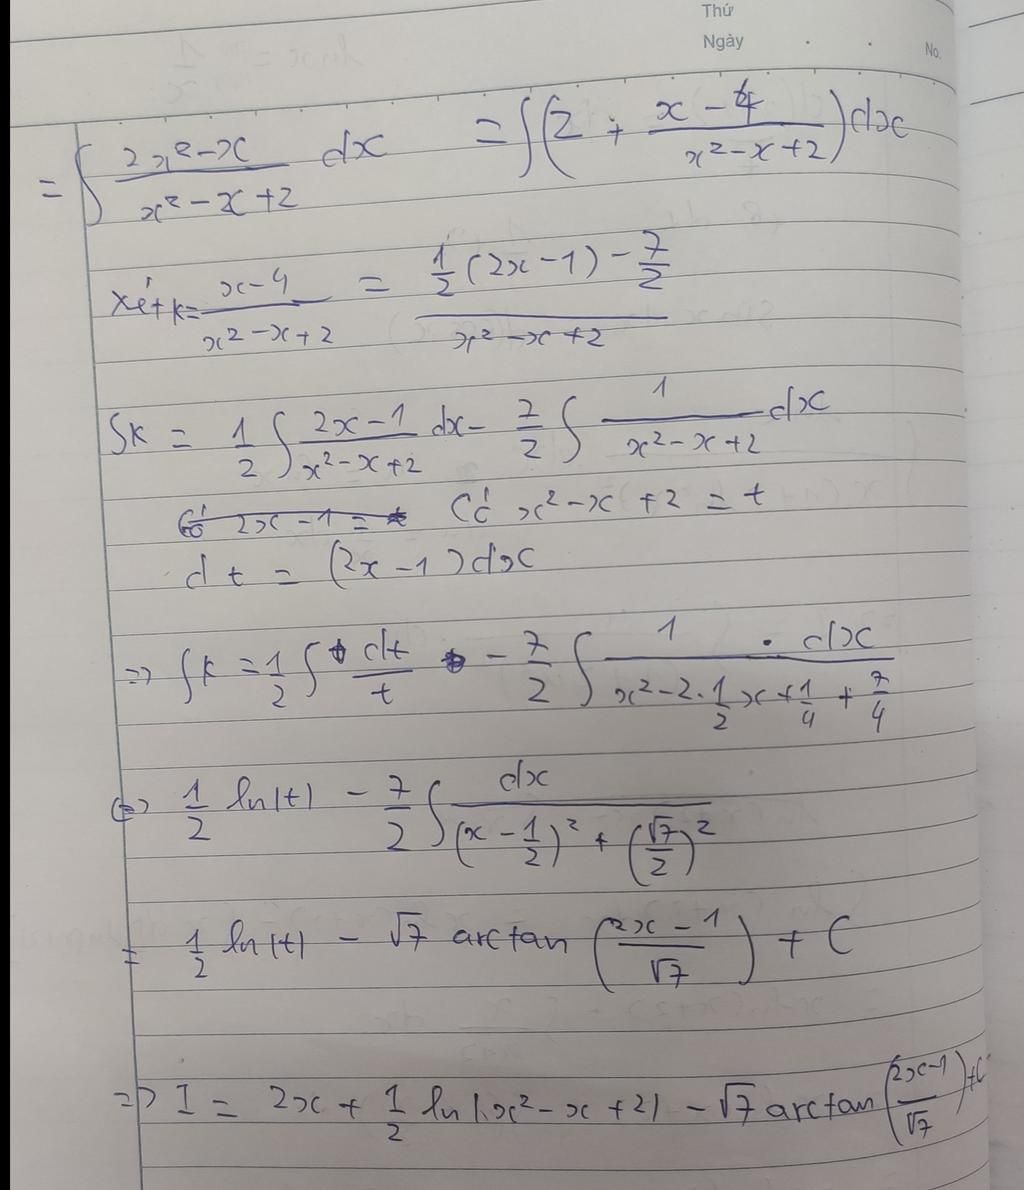 Thứ
Ngày . . No.
= ∫ (2x² - x)/(x² - x + 2) dx = ∫ (2 + (x - 4)/(x² - x + 2)) dx
Xét k = (x - 4)/(x² - x + 2) = (1/2 (2x - 1) - 7/2)/(x² - x + 2)
∫k = 1/2 ∫ (2x - 1)/(x² - x + 2) dx - 7/2 ∫ 1/(x² - x + 2) dx
Có x² - x + 2 = t
dt = (2x - 1)dx
=> ∫k = 1/2 ∫ dt/t - 7/2 ∫ (1 . dx)/(x² - 2.1/2 x + 1/4 + 7/4)
<=> 1/2 ln|t| - 7/2 ∫ dx/((x - 1/2)² + (√7/2)²)
= 1/2 ln|t| - √7 arctan ((2x - 1)/√7) + C
=> I = 2x + 1/2 ln|x² - x + 2| - √7 arctan ((2x - 1)/√7) + C